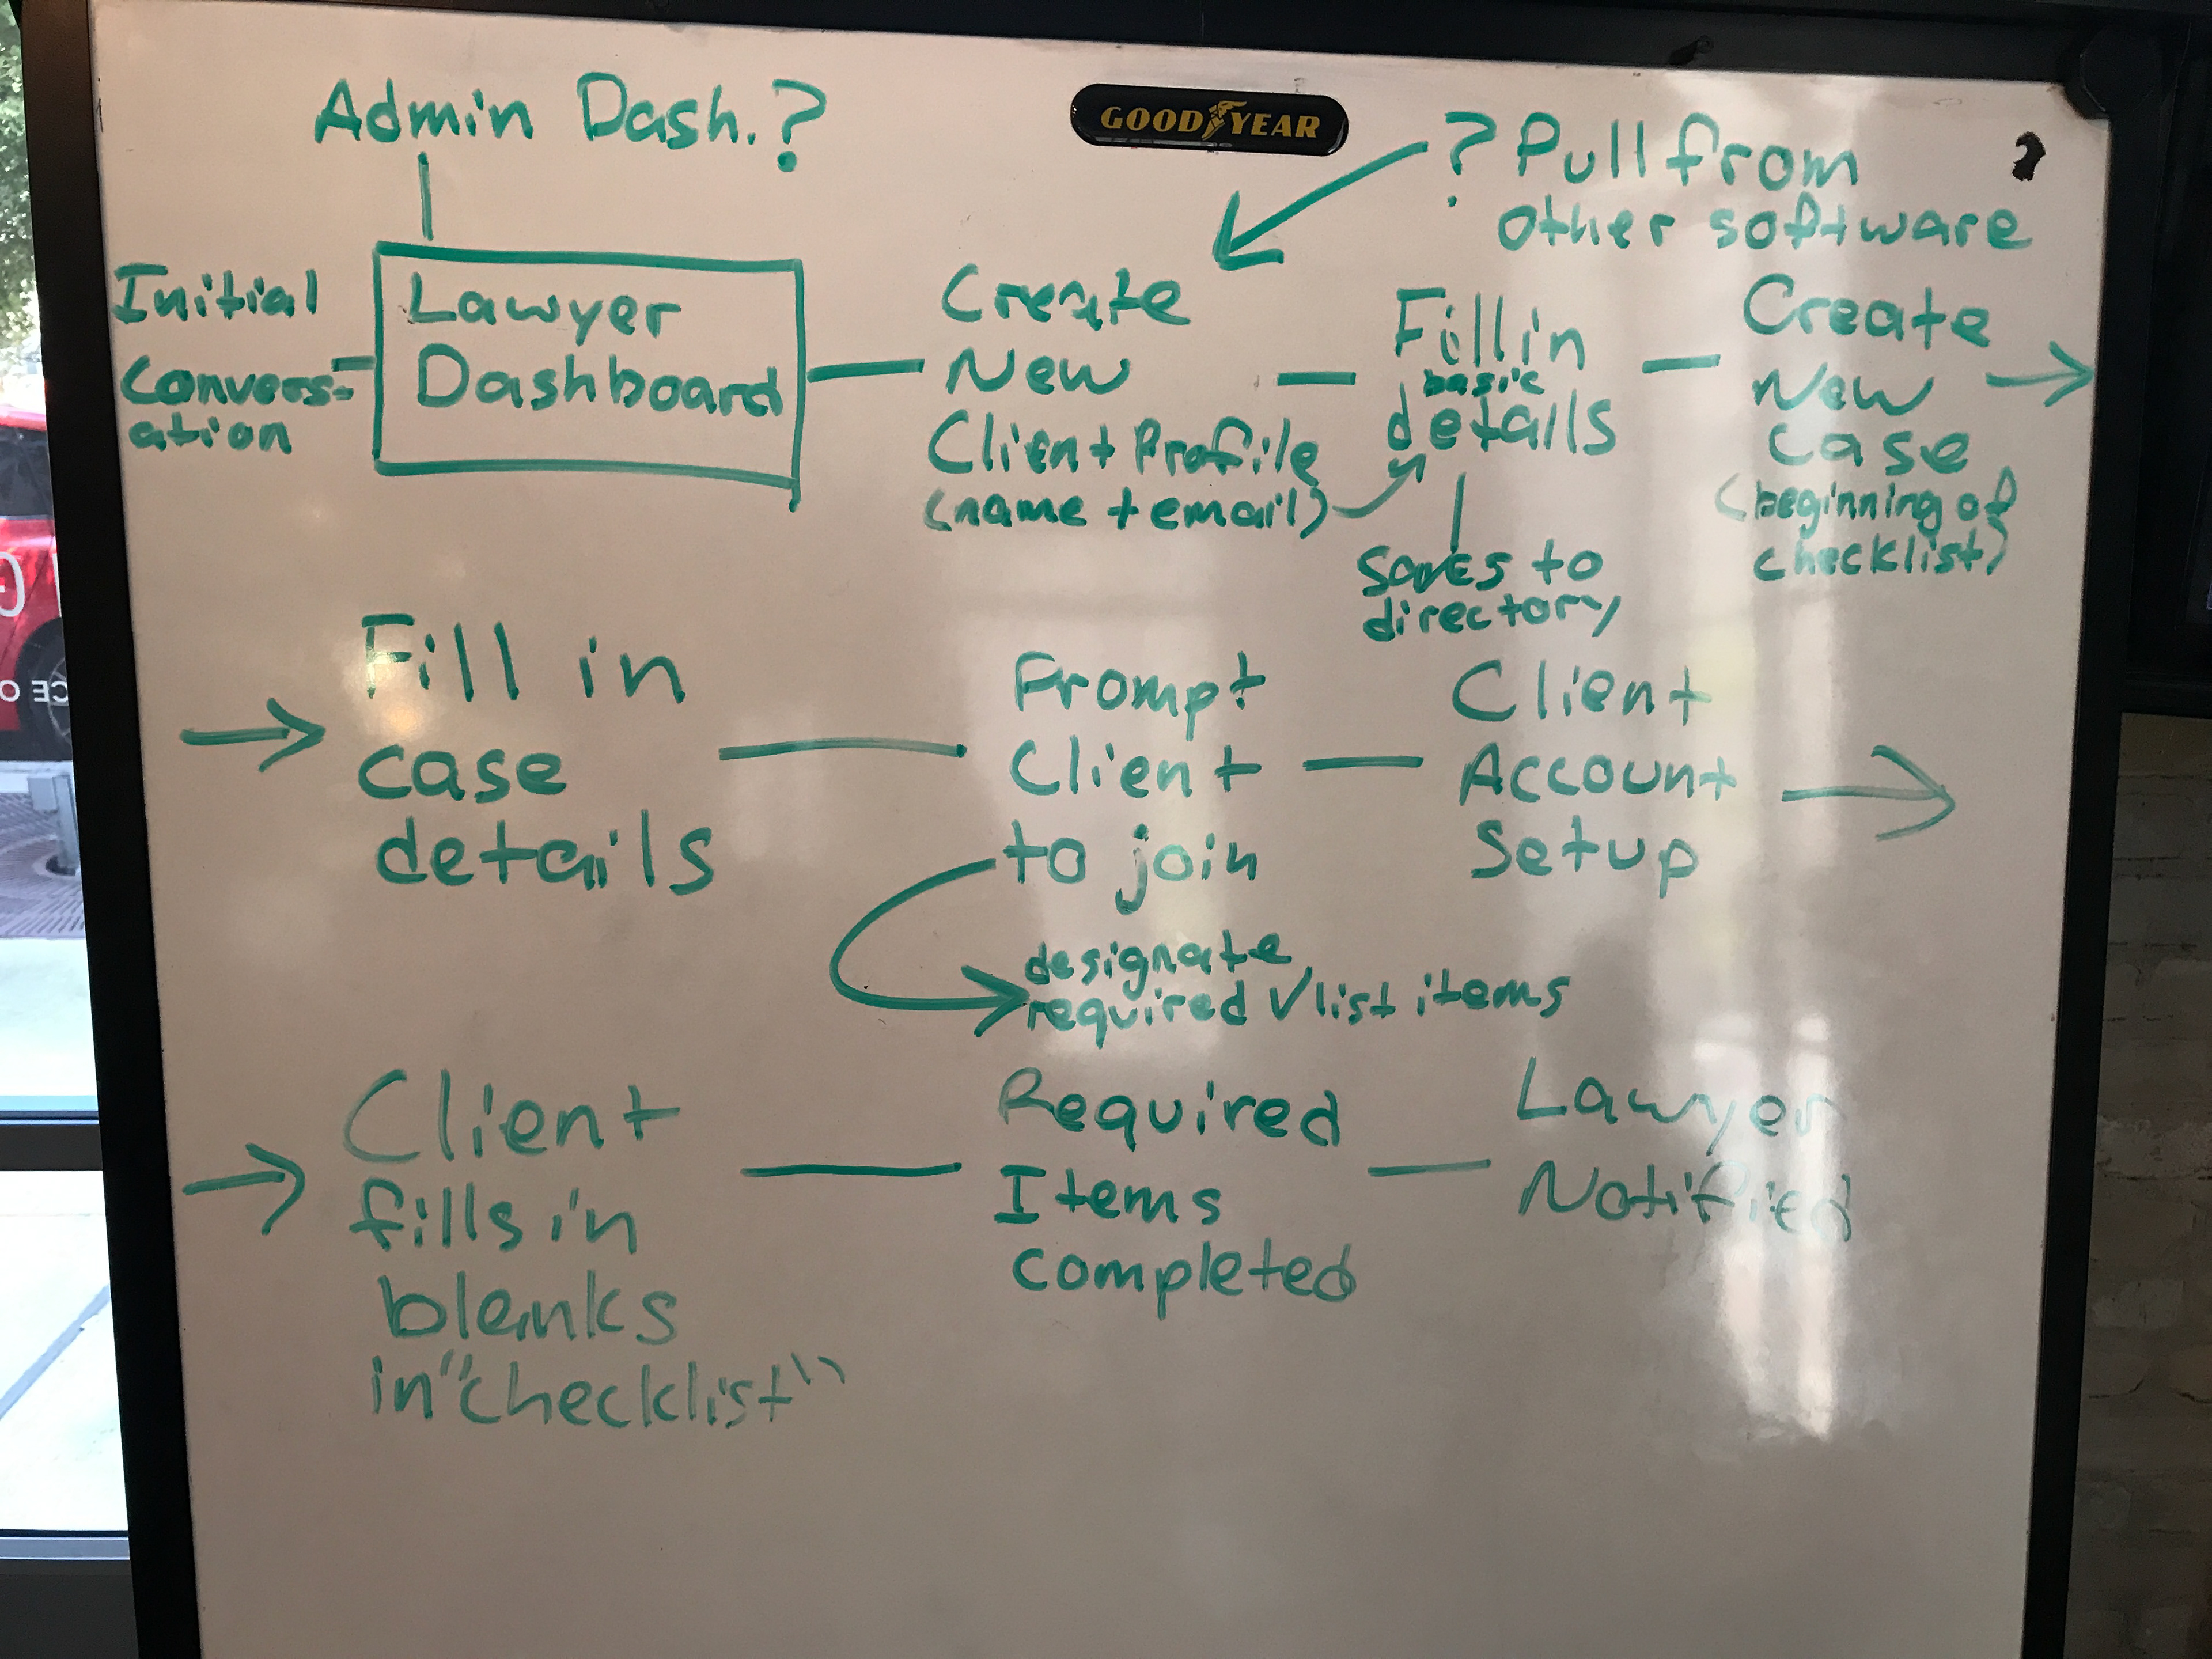 Admin Dash.?
GOOD YEAR
? Pull from
other software
Initial
Convers-
ation
Lawyer
Dashboard
Create
New
Client Profile
(name + email)
Fill in
basic
details
saves to
directory
Create
New
case
(beginning of
checklist)
Fill in
case
details
Prompt
Client
to join
designate
required √list items
Client
Account
Setup
Client
fills in
blanks
in "checklist"
Required
Items
completed
Lawyer
Notified